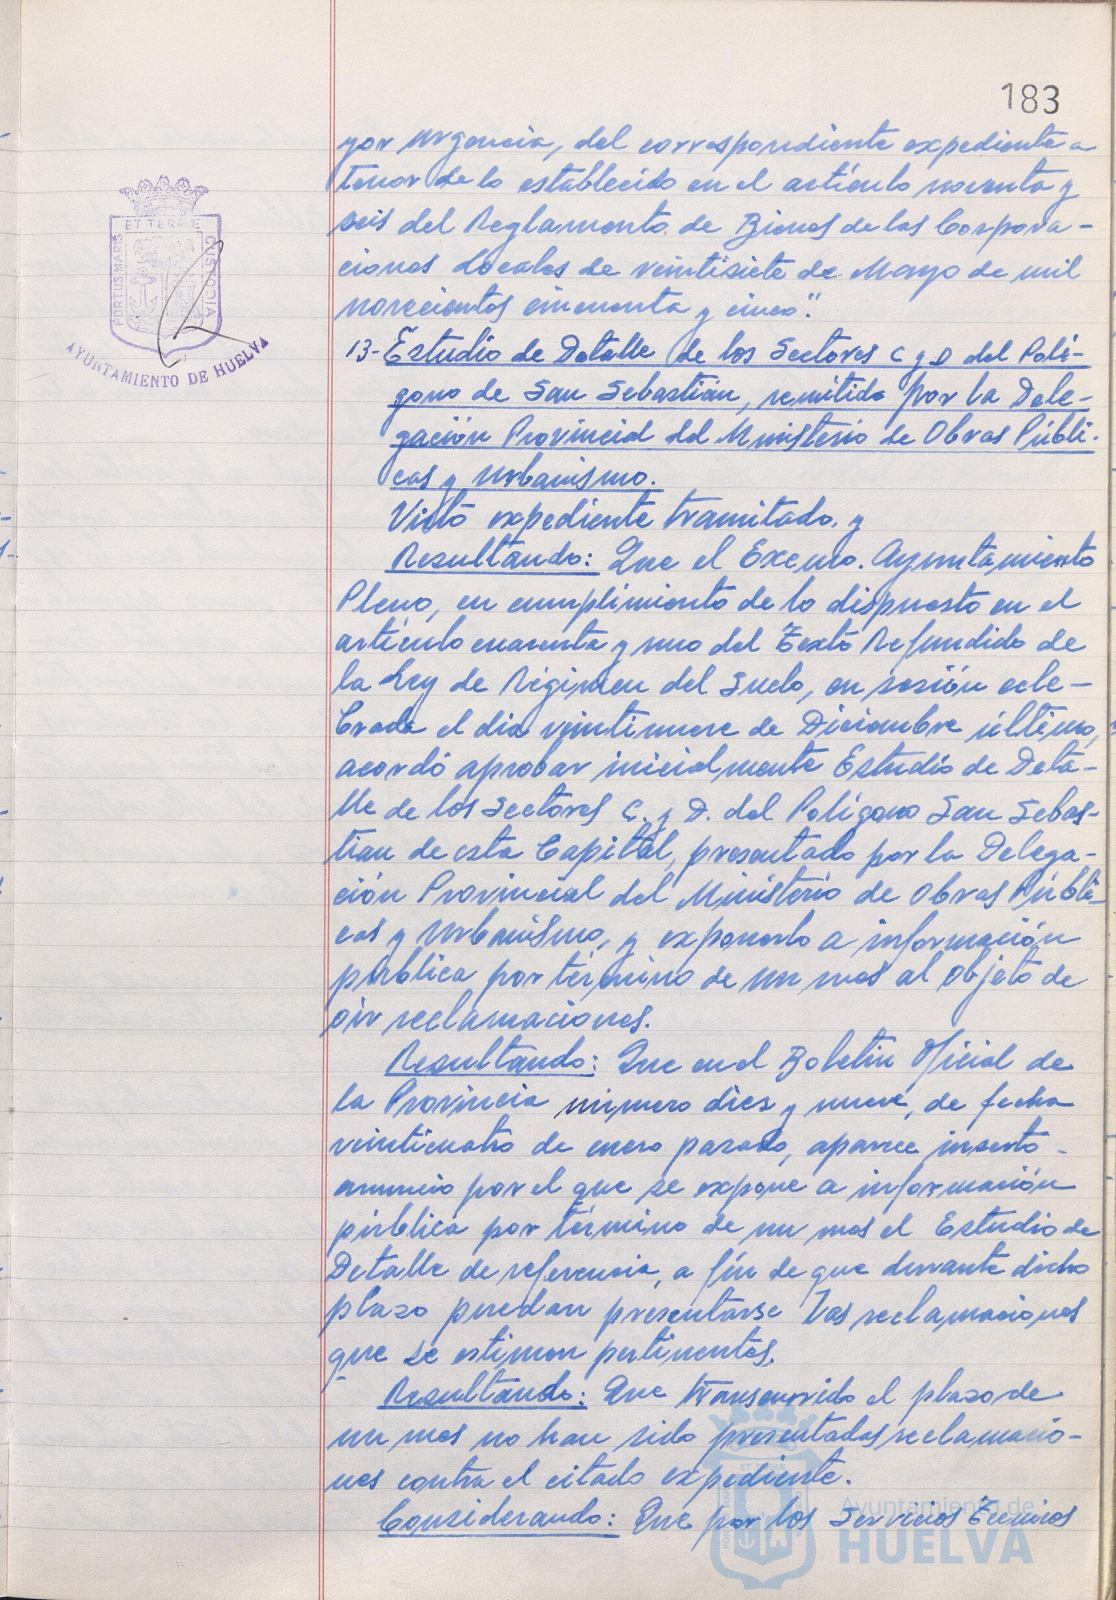 183
yor urgencia, del correspondiente expediente a
tenor de lo establecido en el artículo noventa y
seis del Reglamento de Bienes de las Corpora-
ciones Locales de veintisiete de Mayo de mil
novecientos cincuenta y cinco".
13-Estudio de Detalle de los Sectores C y D del Polí-
gono de San Sebastián, remitido por la Dele-
gación Provincial del Ministerio de Obras Públi-
cas y Urbanismo.
Visto expediente tramitado, y
Resultando: Que el Excmo. Ayuntamiento
Pleno, en cumplimiento de lo dispuesto en el
artículo cuarenta y uno del Texto Refundido de
la Ley de Régimen del Suelo, en sesión cele-
brada el dia veintinueve de Diciembre último,
acordó aprobar inicialmente Estudio de Deta-
lle de los Sectores C. y D. del Polígono San Sebas-
tian de esta Capital, presentado por la Delega-
ción Provincial del Ministerio de Obras Públi-
cas y Urbanismo, y exponerlo a información
pública por término de un mes al objeto de
oir reclamaciones.
Resultando: Que en el Boletin Oficial de
la Provincia número diez y nueve, de fecha
veinticuatro de enero pasado, aparece inserto
anuncio por el que se expone a información
pública por término de un mes el Estudio de
Detalle de referencia, a fín de que durante dicho
plazo puedan presentarse las reclamaciones
que se estimen pertinentes.
Resultando: Que transcurrido el plazo de
un mes no han sido presentadas reclamacio-
nes contra el citado expediente.
Considerando: Que por los Servicios Técnicos
PORTUS MARIS
ET TERRAE
CUSTODIA
AYUNTAMIENTO DE HUELVA
Ayuntamiento de
HUELVA